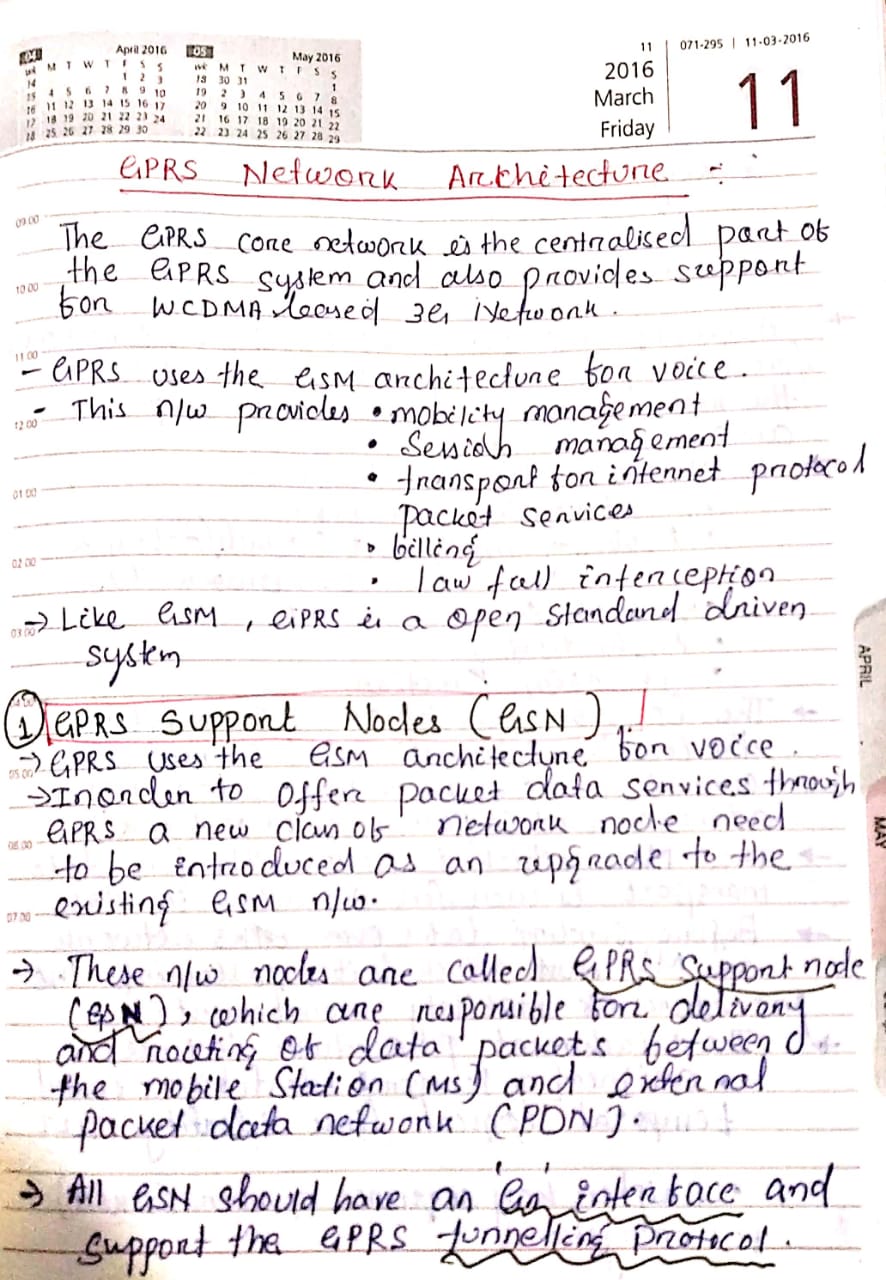 04 April 2016 05 May 2016
wk M T W T F S S wk M T W T F S S
14 1 2 3 18 30 31 1
15 4 5 6 7 8 9 10 19 2 3 4 5 6 7 8
16 11 12 13 14 15 16 17 20 9 10 11 12 13 14 15
17 18 19 20 21 22 23 24 21 16 17 18 19 20 21 22
18 25 26 27 28 29 30 22 23 24 25 26 27 28 29
11 071-295 | 11-03-2016
2016
March
Friday
11
GPRS Network Architecture :-
09.00
The GPRS core network is the centralised part of
the GPRS system and also provides support
10.00
for WCDMA based 3G Network.
11.00
- GPRS uses the GSM architecture for voice.
- This n/w provides • mobility management
12.00
• Session management
• transport for internet protocol
01.00
packet services
• billing
02.00
• law full interception
→ Like GSM, GPRS is a open standard driven
03.00
system
04.00
1 GPRS Support Nodes (GSN)
→ GPRS uses the GSM architecture for voice.
05.00
→ Inorder to offer packet data services through
GPRS a new class of network node need
06.00
to be introduced as an upgrade to the
existing GSM n/w.
07.00
→ These n/w nodes are called GPRS Support node
(GSN), which are responsible for delivary
and routing of data packets between
the mobile Station (MS) and external
packet data network (PDN).
→ All GSN should have an 'Gn' interface and
support the GPRS tunnelling Protocol.
APRIL
MAY